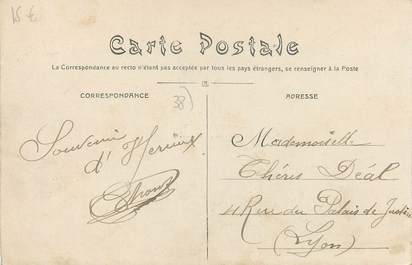 15 €
Carte Postale
La Correspondance au recto n'étant pas acceptée par tous les pays étrangers, se renseigner à la Poste
CORRESPONDANCE
38)
ADRESSE
Souvenir
d'Heyrieux
Mademoiselle
Théris Déal
4 Rue du Palais de Justice
(Lyon)